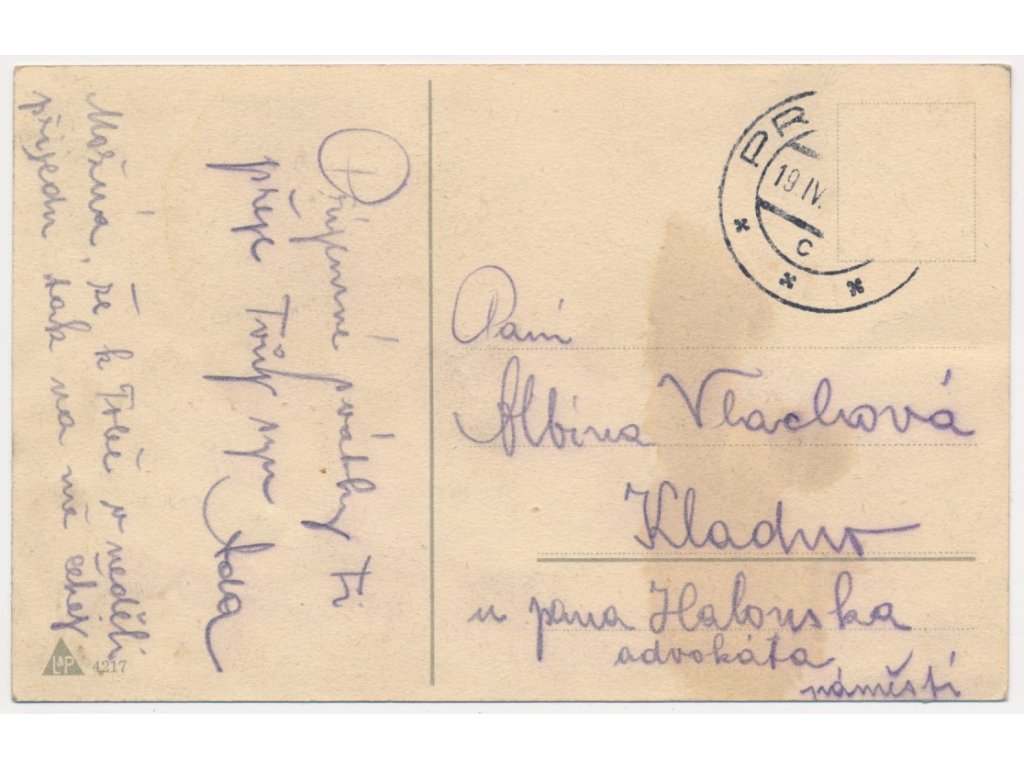 Příjemné svátky Ti
přeje Tvůj syn
Ada
Možná, že k Tobě v neděli
přijedu tak na mě čekej
L&P 4217
PR
19.IV.
C
Paní
Albina Vlachová
Kladno
u pana Halouska
advokáta
náměstí